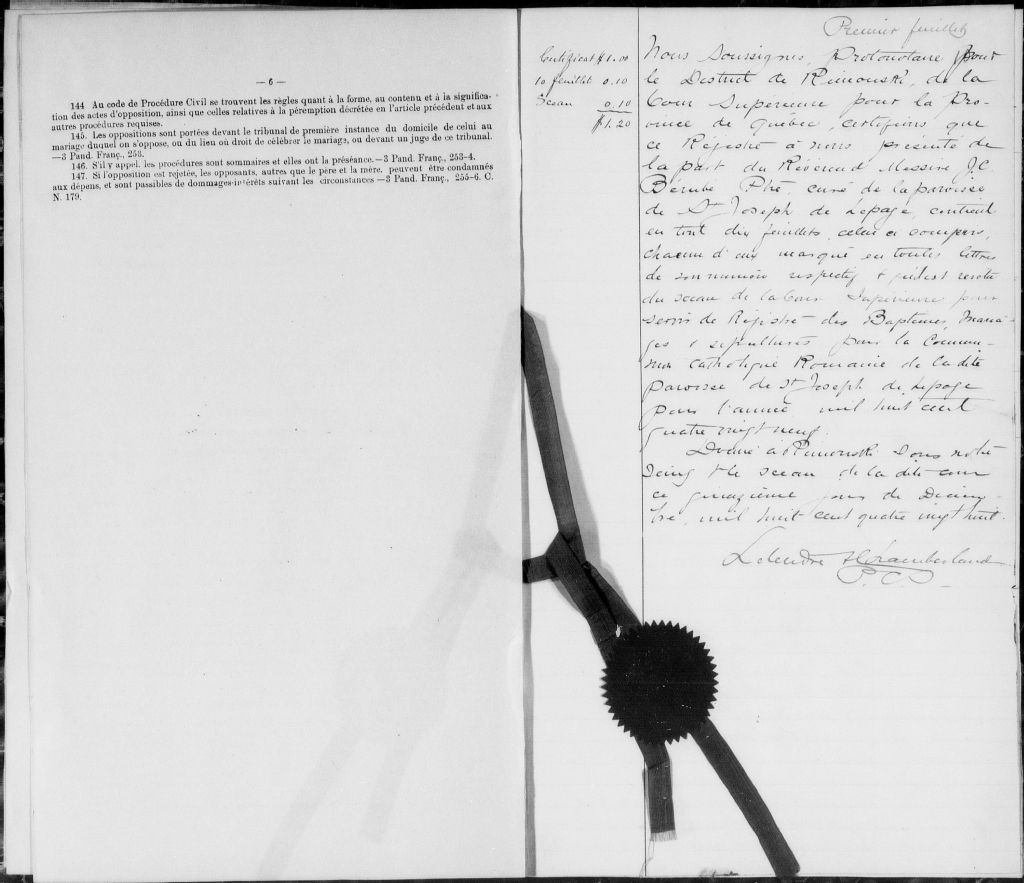 — 6 —
144 Au code de Procédure Civil se trouvent les règles quant à la forme, au contenu et à la significa-
tion des actes d'opposition, ainsi que celles relatives à la péremption décrétée en l'article précédent et aux
autres procédures requises.
145. Les oppositions sont portées devant le tribunal de première instance du domicile de celui au
mariage duquel on s'oppose, ou du lieu où droit de célébrer le mariage, ou devant un juge de ce tribunal.
—3 Pand. Franç., 253.
146. S'il y appel, les procédures sont sommaires et elles ont la préséance.—3 Pand. Franç., 253-4.
147. Si l'opposition est rejetée, les opposants, autres que le père et la mère, peuvent être condamnés
aux dépens, et sont passibles de dommages-intérêts suivant les circonstances—3 Pand. Franç., 255-6. C.
N. 179.
Premier feuillet
Certificat $1.00
10 feuillet 0.10
Sceau 0.10
$1.20
Nous Soussigné, Protonotaire pour
le District de Rimouski, de la
Cour Supérieure pour la Pro-
vince de Québec, certifions que
ce Régistre à nous présenté de
la part du Révérend Messire J.C.
Bérubé Ptre, curé de la paroisse
de St Joseph de Lepage, contient
en tout dix feuillets, celui ci compris,
chacun d'eux marqué en toutes lettres
de son numéro respectif & qu'il est revêtu
du sceau de la Cour Supérieure pour
servir de Régistre des Baptêmes, Maria-
ges & sépultures pour la Commu-
nion Catholique Romaine de la dite
paroisse de St Joseph de Lepage
pour l'année mil huit cent
quatre vingt neuf.
Donné à Rimouski sous notre
seing & le sceau de la dite cour
ce jour de Décem-
bre, mil huit cent quatre vingt huit.
Chamberland
P. C. S.